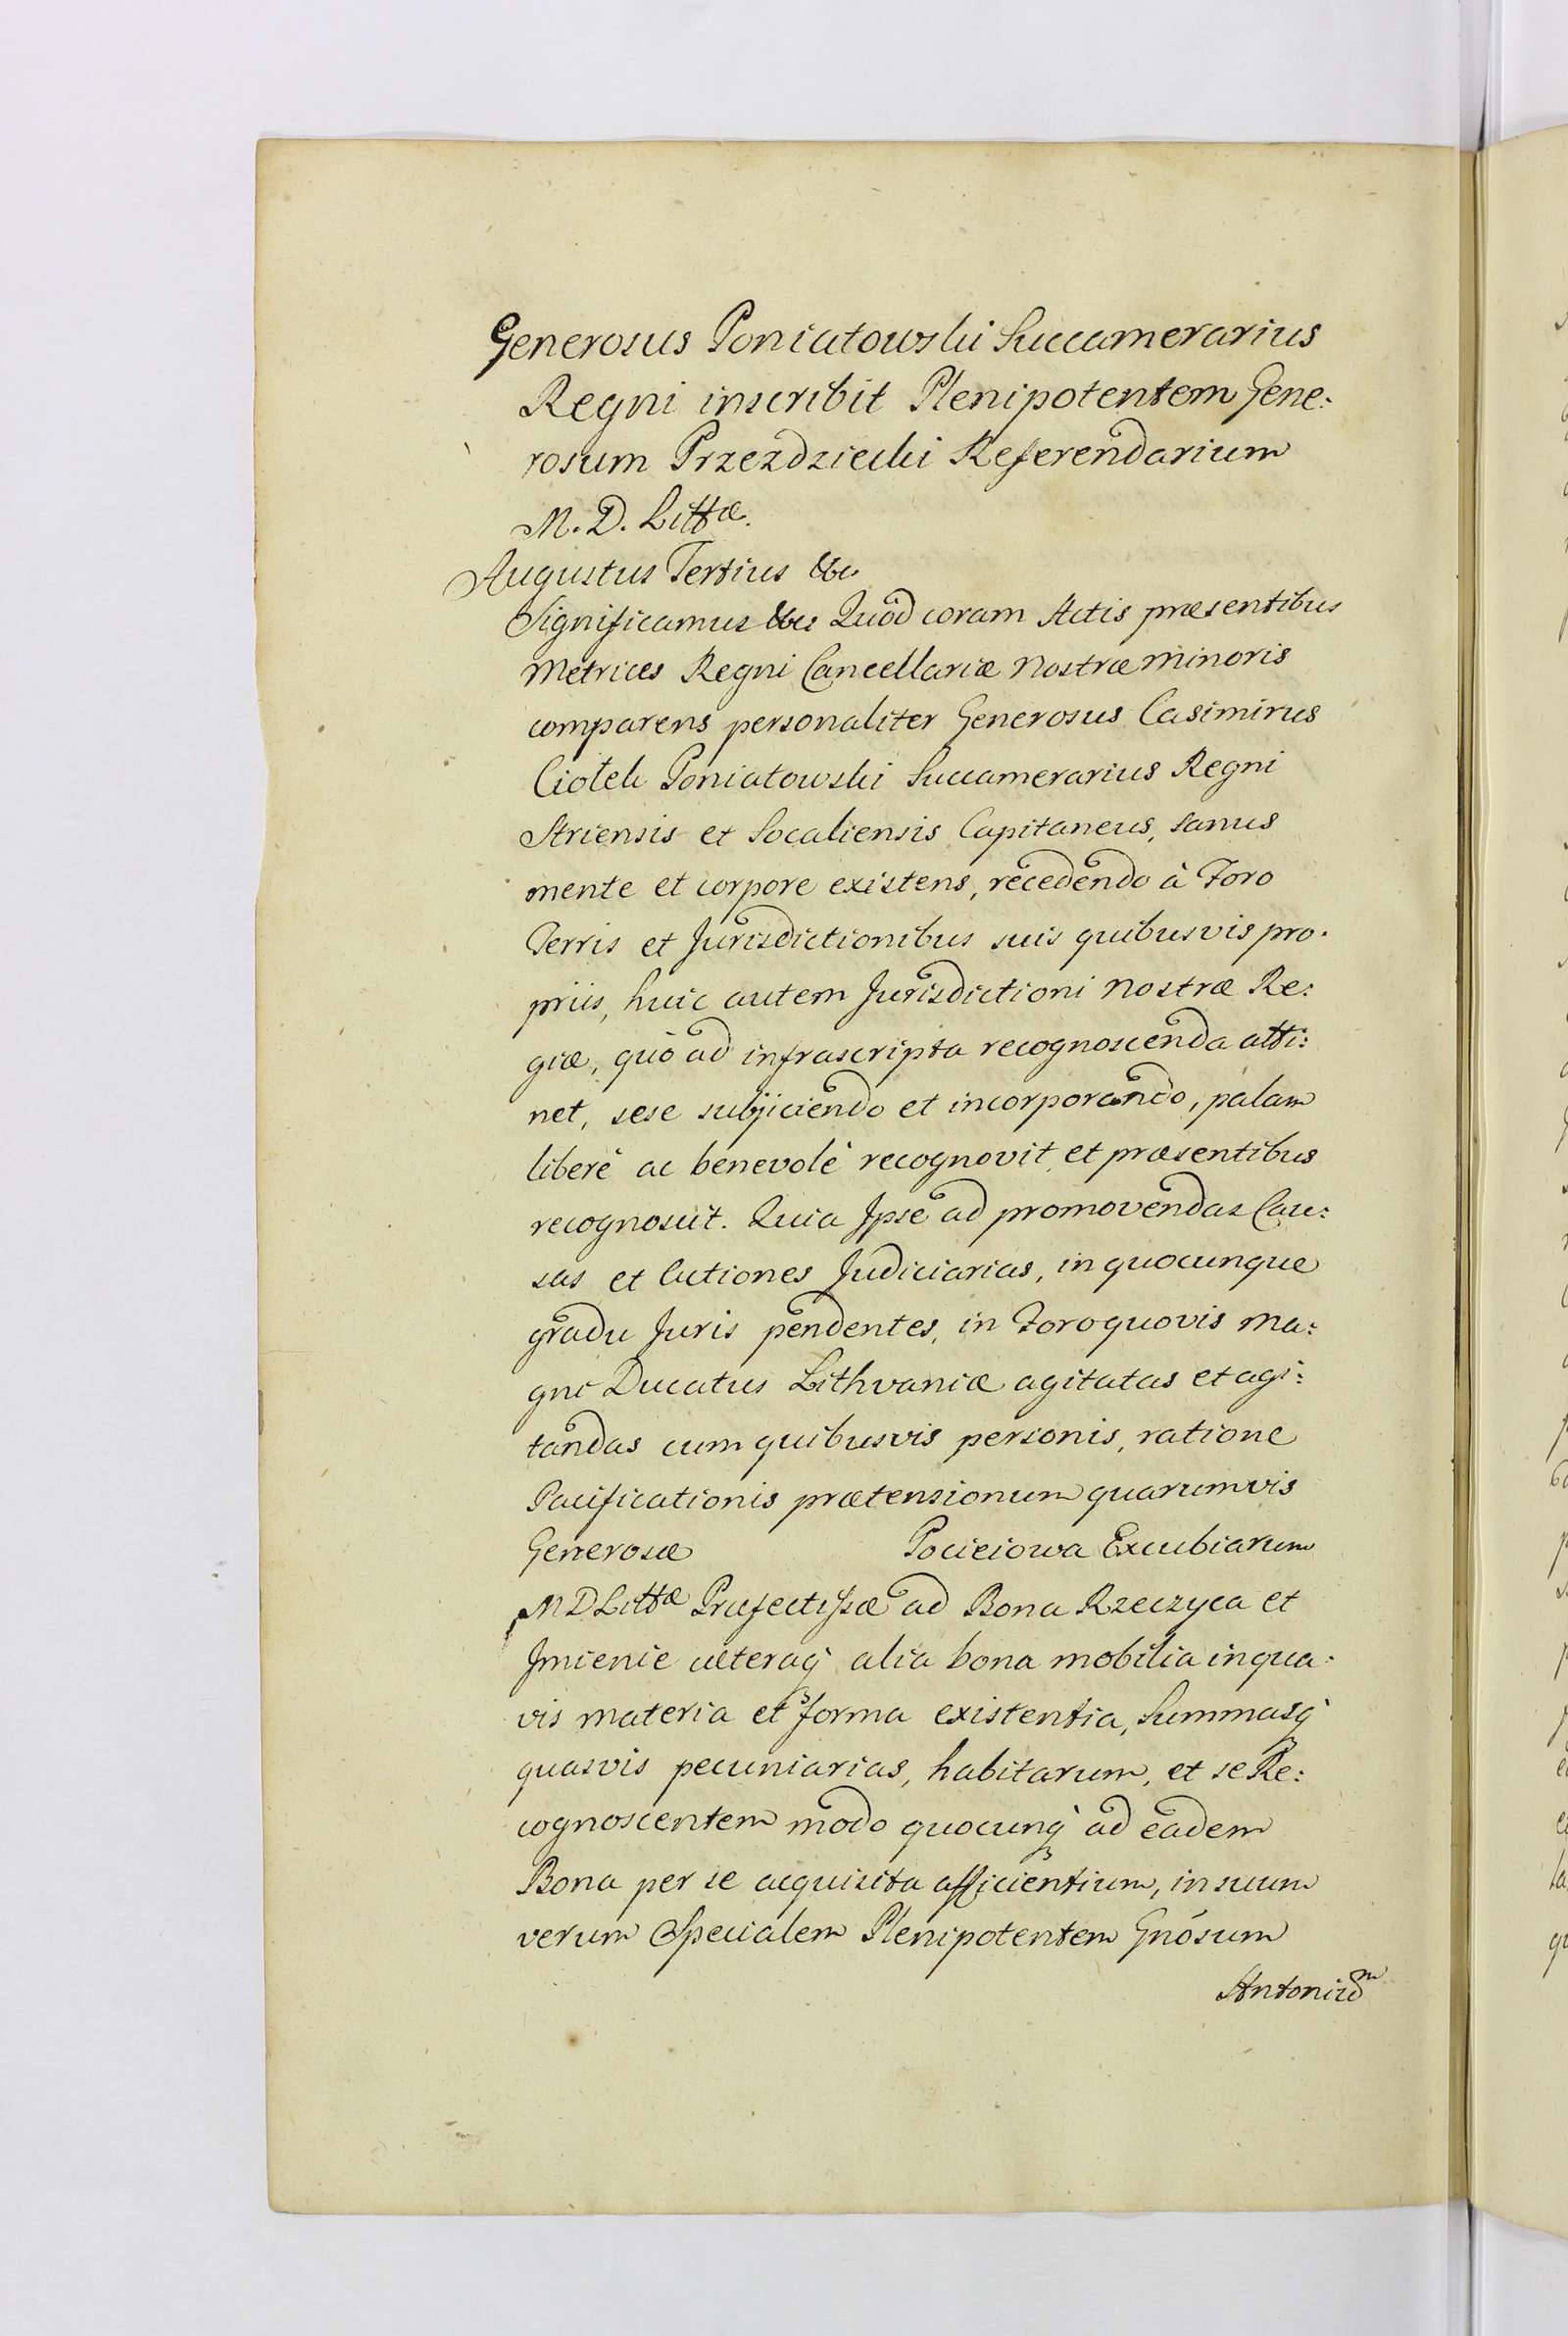 Generosus Poniatowski Succamerarius
Regni inscribit Plenipotentem Gene:
rosum Przezdziecki Referendarium
M. D. Littæ.
Augustus Tertius &c
Significamus &c: Quòd coram Actis præsentibus
Metrices Regni Cancellariæ Nostræ Minoris
comparens personaliter Generosus Casimirus
Ciołek Poniatowski Succamerarius Regni
Striensis et Socaliensis Capitaneus, sanus
mente et corpore existens, recedendo à Foro
Terris et Jurisdictionibus suis quibusvis pro:
priis, huic autem Jurisdictioni Nostræ Re:
giæ, quò ad infrascripta recognoscenda atti:
net, sese subjiciendo et incorporando, palam
liberè ac benevolè recognovit, et præsentibus
recognoscit. Quia Jpse ad promovendas Cau:
sas et Actiones Judiciarias, in quocunque
gradu Juris pendentes, in Foro quovis Ma:
gni Ducatus Lithvaniæ agitatas et agi:
tandas cum quibusvis personis, ratione
Pacificationis prætensionum quarumvis
Generosæ Pocieiowa Excubiarum
M D Littæ Præfectissæ ad Bona Rzeczyca et
Jmienie cæteraq́ alia bona mobilia in qua:
vis materia et forma existentia, Summasq́
quasvis pecuniarias, habitarum, et se Re:
cognoscentem modo quocunq́ ad eadem
Bona per se acquisita afficientium, in suum
verum Specialem Plenipotentem Gnôsum
Antonium